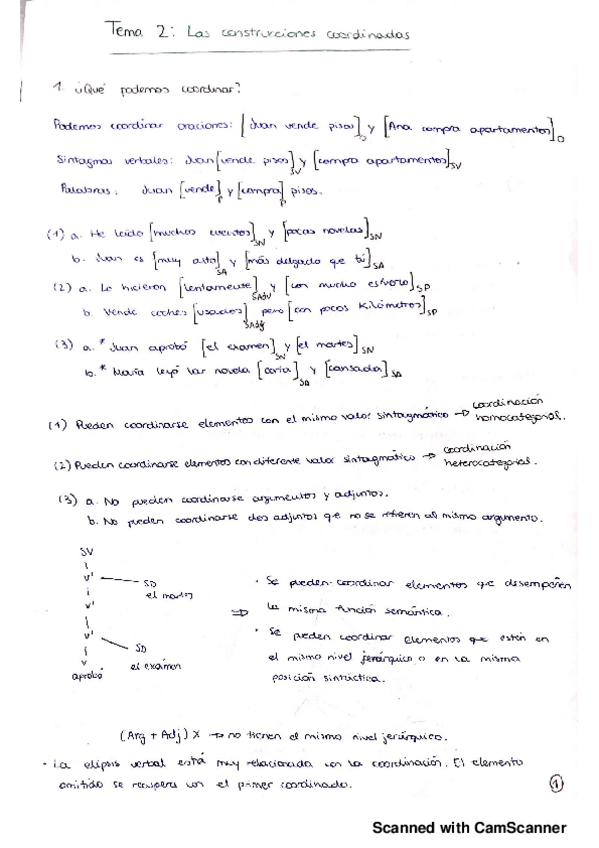 Tema 2: Las construcciones coordinadas
1. ¿Qué podemos coordinar?
Podemos coordinar oraciones: [Juan vende pisos]O y [Ana compra apartamentos]O
Sintagmas verbales: Juan [vende pisos]SV y [compra apartamentos]SV
Palabras: Juan [vende]P y [compra]P pisos.
(1) a. He leído [muchos cuentos]SN y [pocas novelas]SN
b. Juan es [muy alto]SA y [más delgado que tú]SA
(2) a. Lo hicieron [lentamente]SAdv y [con mucho esfuerzo]SP
b. Vende coches [usados]SAdj pero [con pocos kilómetros]SP
(3) a. * Juan aprobó [el examen]SN y [el martes]SN
b. * María leyó la novela [corta]SA y [cansada]SA
(1) Pueden coordinarse elementos con el mismo valor sintagmático → coordinación homocategorial.
(2) Pueden coordinarse elementos con diferente valor sintagmático → coordinación heterocategorial.
(3) a. No pueden coordinarse argumentos y adjuntos.
b. No pueden coordinarse dos adjuntos que no se refieren al mismo argumento.
SV
v'
SD
el martes
v'
v'
SD
el examen
v
aprobó
⇒
· Se pueden coordinar elementos que desempeñen
la misma función semántica.
· Se pueden coordinar elementos que estén en
el mismo nivel jerárquico o en la misma
posición sintáctica.
(Arg + Adj) X → no tienen el mismo nivel jerárquico.
· La elipsis verbal está muy relacionada con la coordinación. El elemento
omitido se recupera con el primer coordinado.
1
Scanned with CamScanner